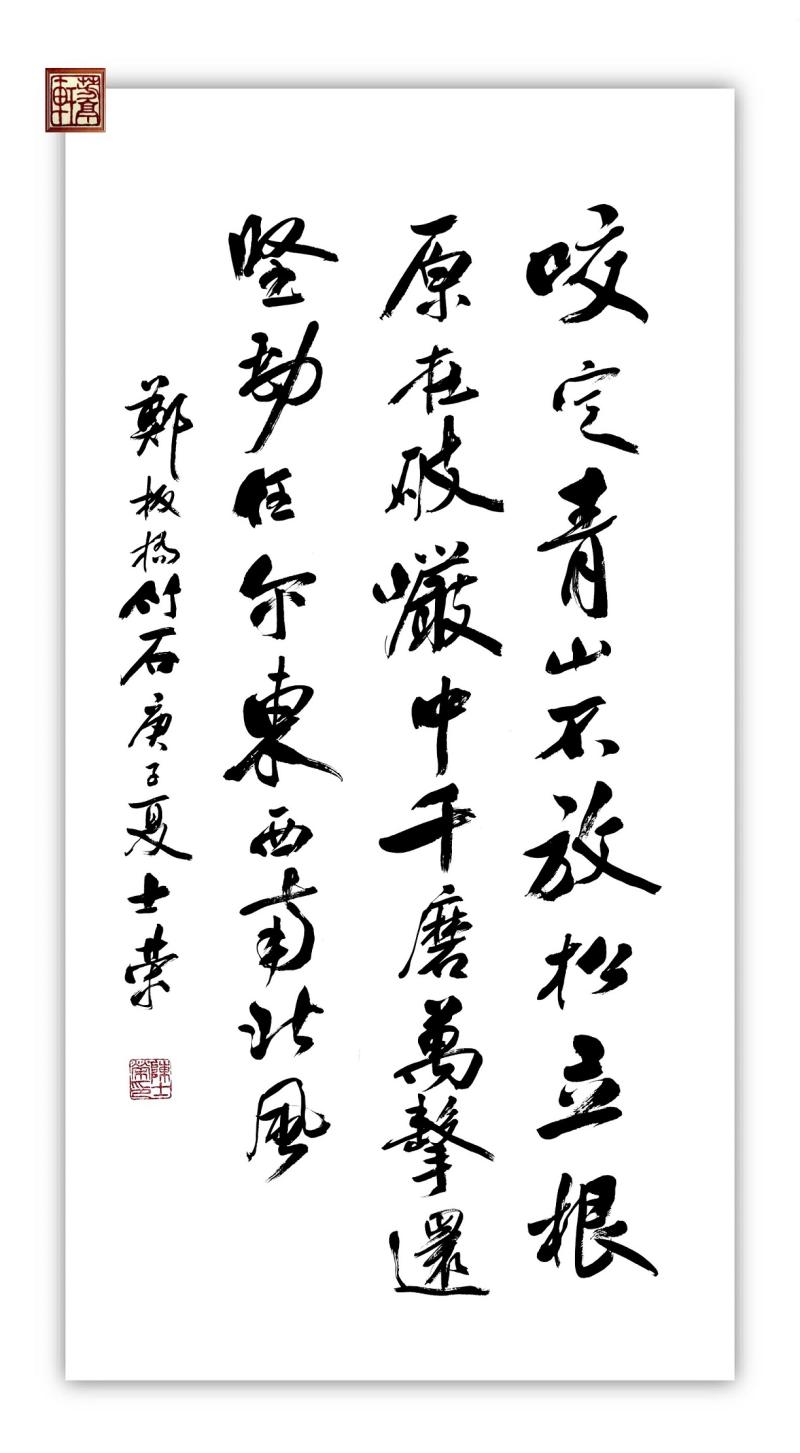 咬定青山不放松立根
原在破巖中千磨萬擊還
坚劲任尔東西南北風
鄭板橋竹石庚子夏士荣
陳士榮印